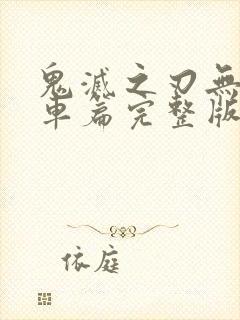 鬼滅之刃無
車篇完整版
依庭